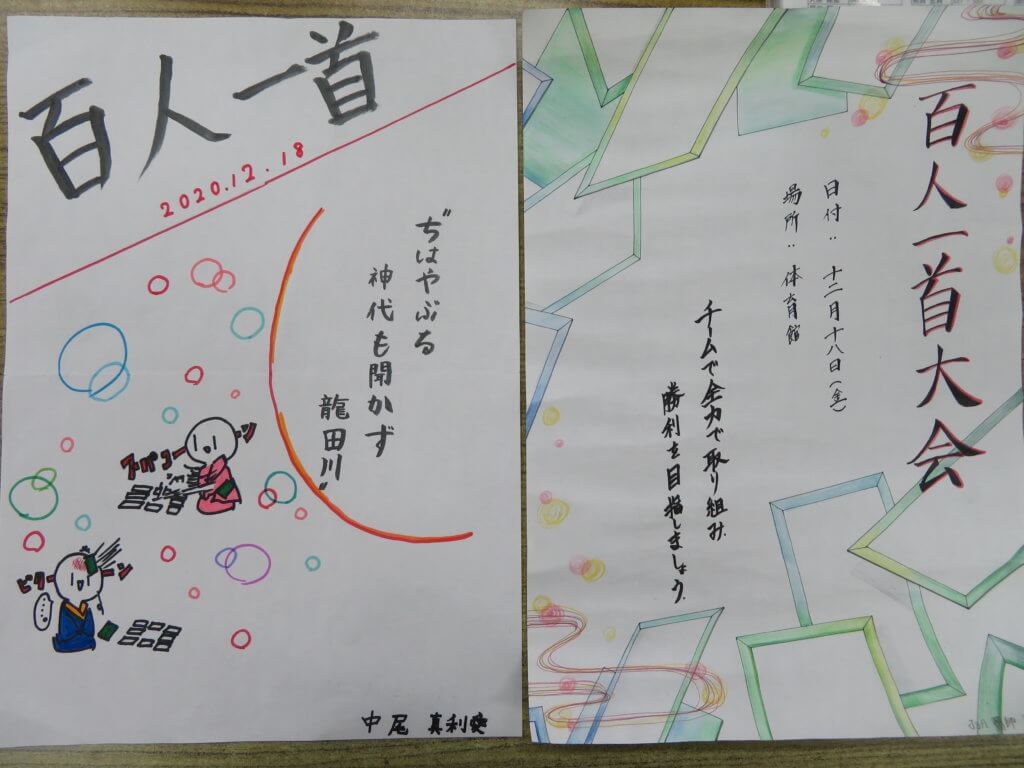 百人一首
2020.12.18
"ちはやぶる
神代も聞かず
龍田川"
スパコーン
ピクーン
中尾 真利
百人一首大会
日付: 十二月十八日(金)
場所: 体育館
チームで全力で取り組み
勝利を目指しましょう